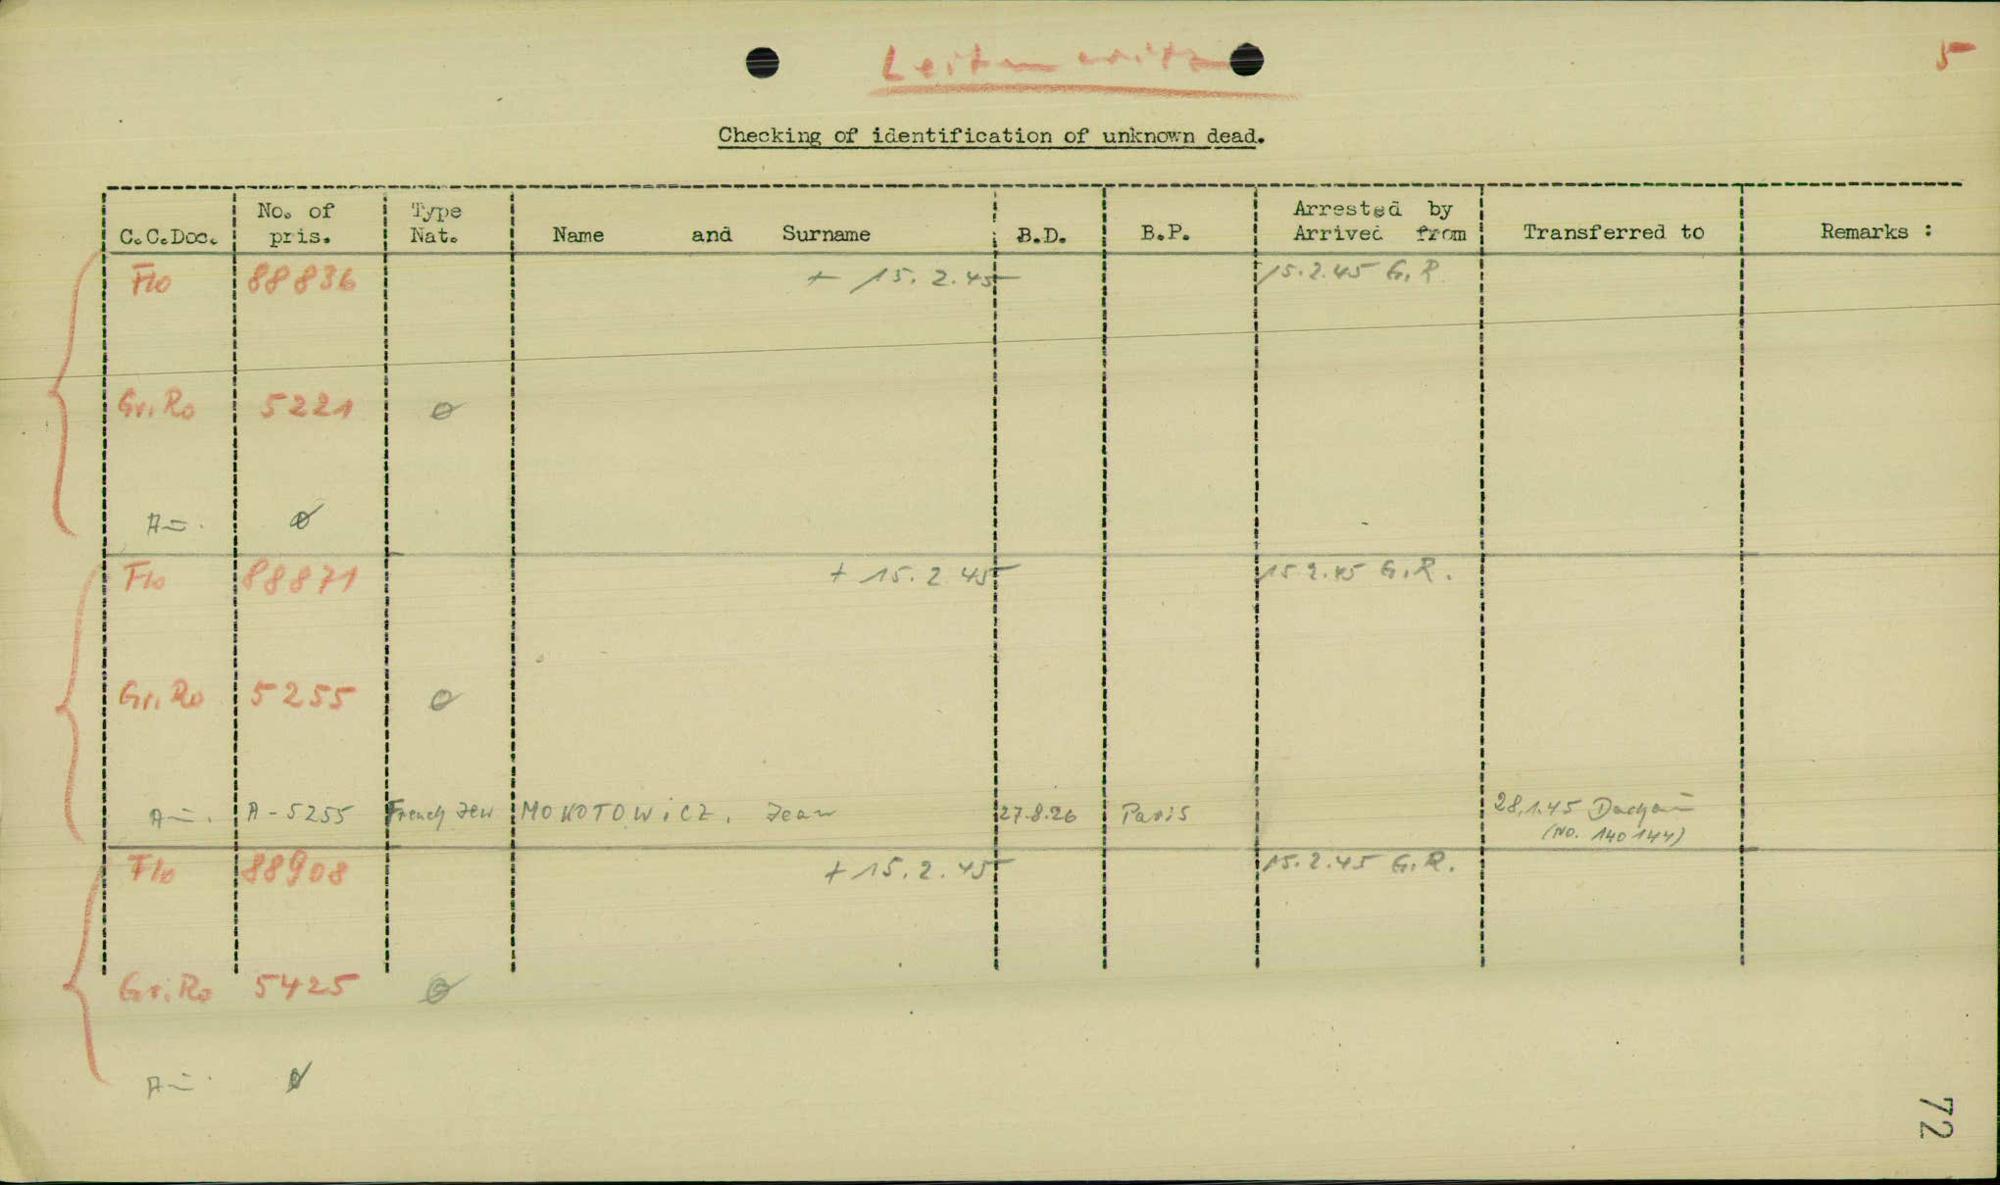 Leitmeritz
5
Checking of identification of unknown dead.
C.C.Doc. No. of pris. Type Nat. Name and Surname B.D. B.P. Arrested by Arrived from Transferred to Remarks :
Flo 88836 + 15.2.45 15.2.45 G.R.
Gr.Ro 5221 ø
A=. ø
Flo 88871 + 15.2.45 15.2.45 G.R.
Gr.Ro 5255 ø
A=. A-5255 French Jew MOKOTOWiCZ, Jean 27.8.26 Paris 28.1.45 Dachau
(No. 140144)
Flo 88908 + 15.2.45 15.2.45 G.R.
Gr.Ro 5425 ø
A=. ø
72